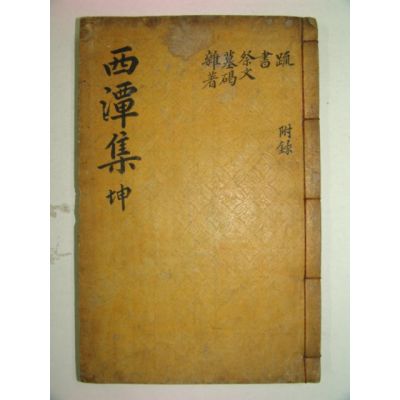 西潭集 坤
疏
書
祭文
墓碣
雜著
附錄